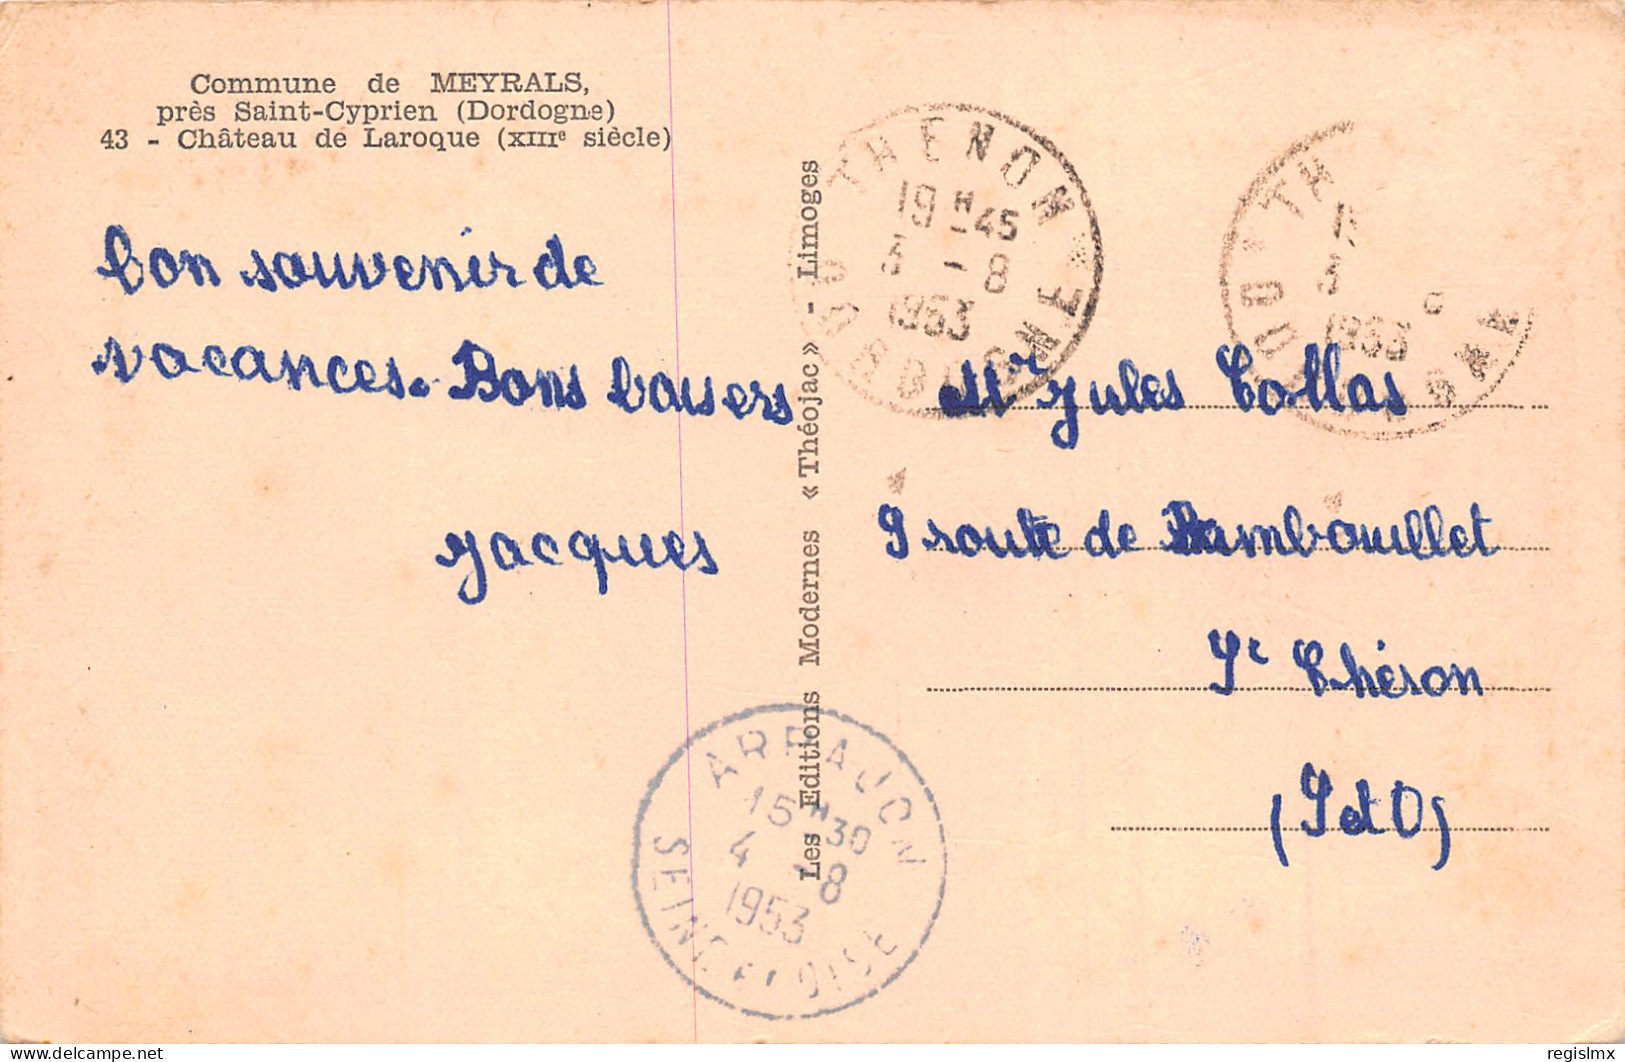 Commune de MEYRALS,
près Saint-Cyprien (Dordogne)
43 - Château de Laroque (XIIIe siècle)
bon souvenir de
vacances. Bons baisers
Jacques
Les Editions Modernes « Théojac » - Limoges
THENON
19 H 45
3 - 8
1953
DORDOGNE
TH
1
3
1953
DO GNE
Mr Jules Collas
9 route de Rambouillet
St Chéron
(S et O)
ARPAJON
15 H 30
4 - 8
1953
SEINE ET OISE
delcampe.net
regislmx